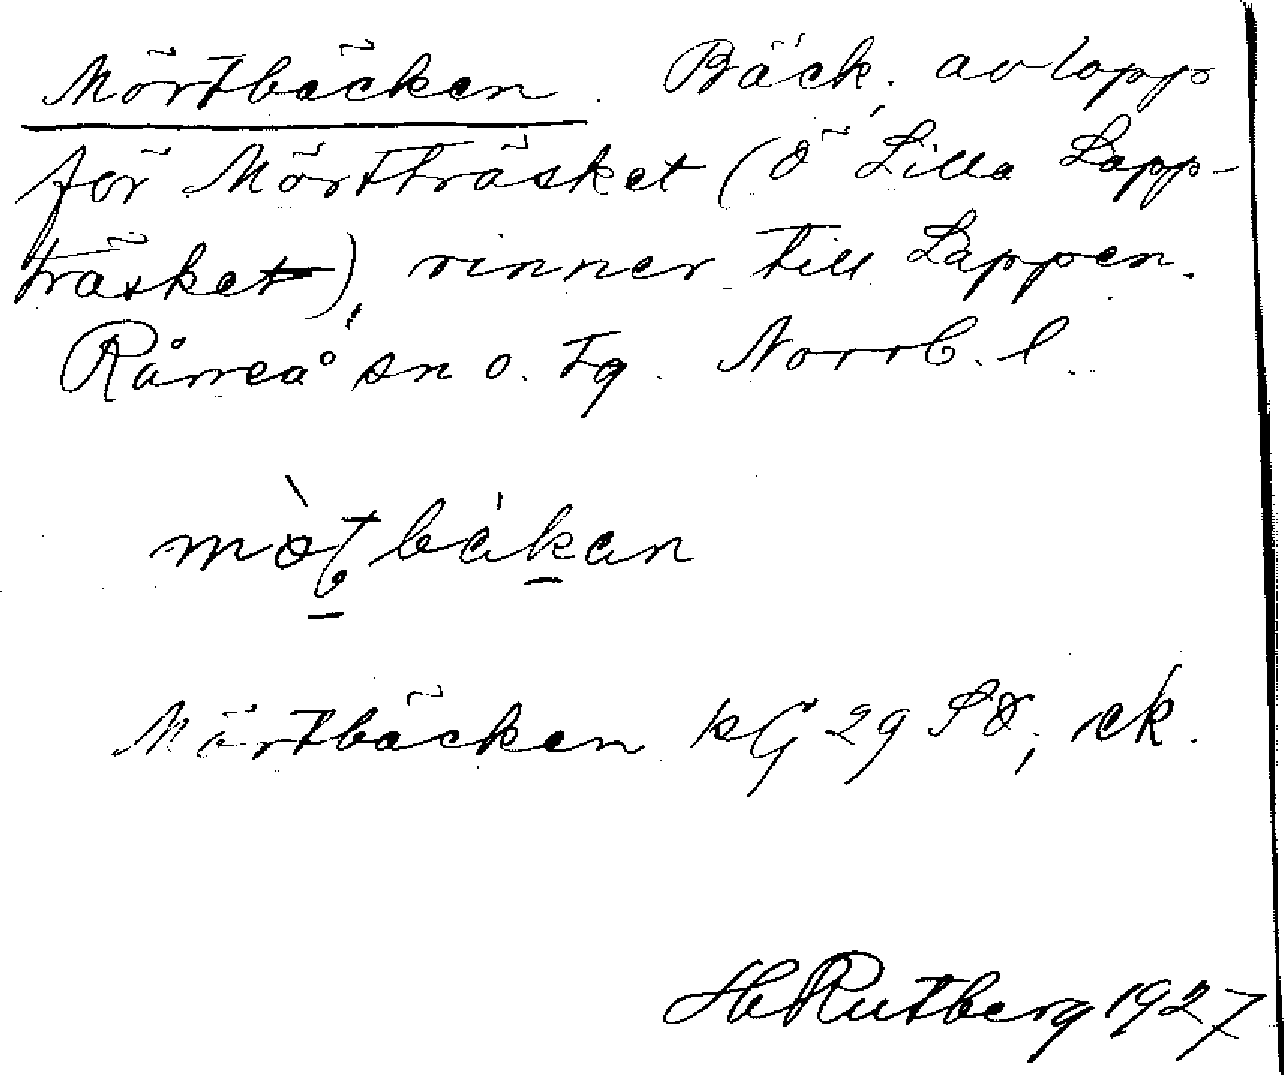 Mörtbäcken. Bäck, avlopp
för Mörtträsket (ö Lilla Lapp-
träsket), rinner till Lappen.
Råneå sn o. tg. Norrb. l.
Mörtbäcken kG 29 SO, ek.
H Rutberg 1927